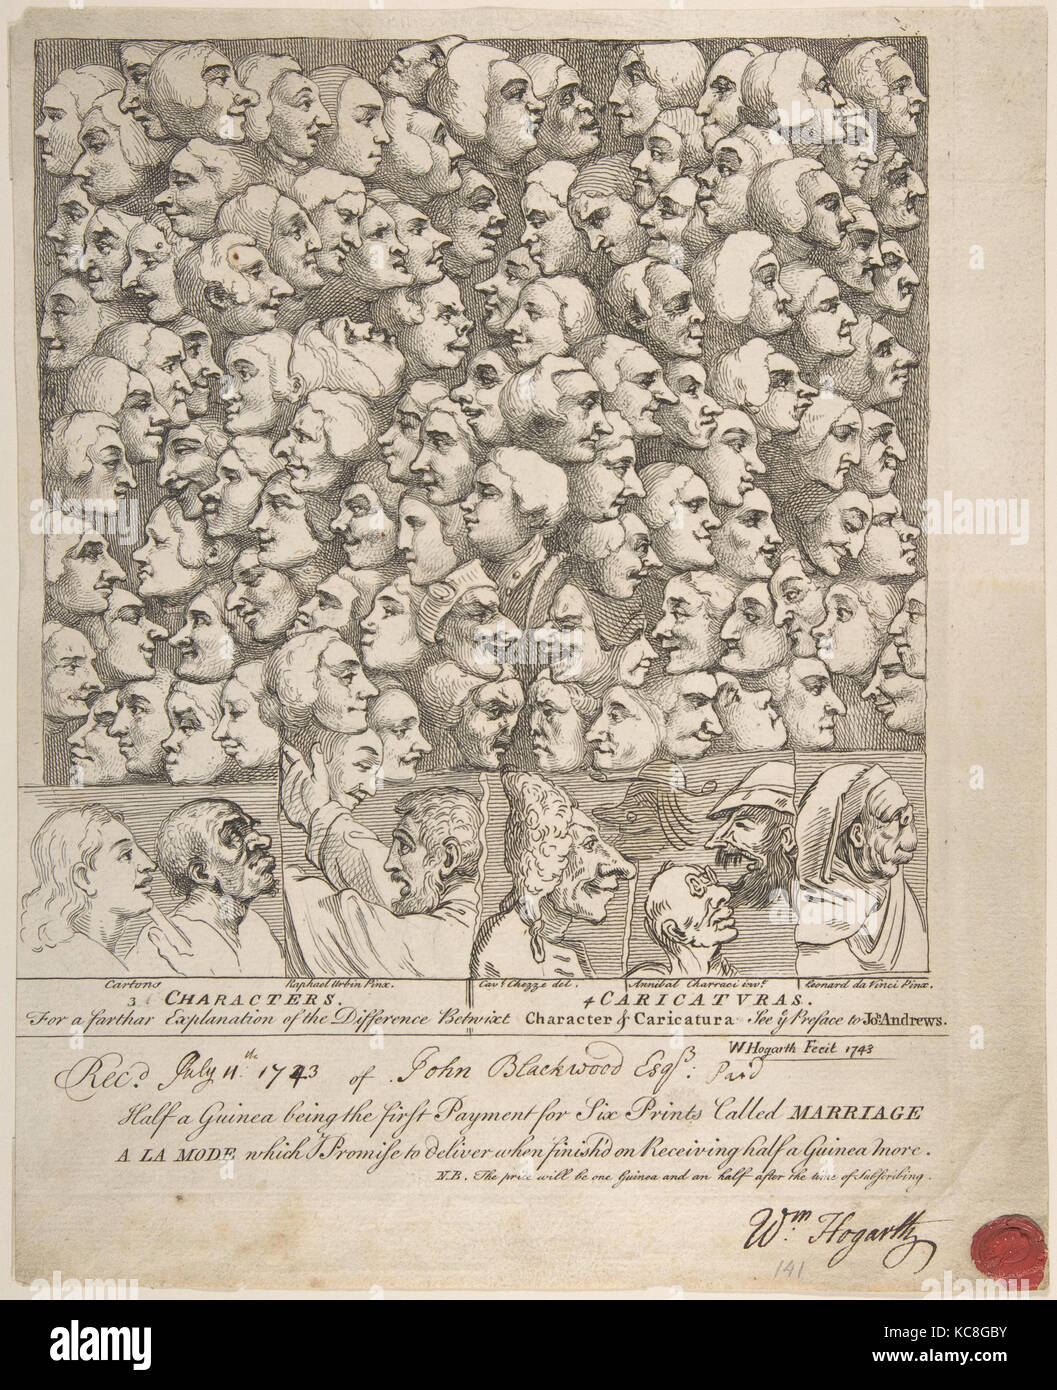 Cartons Raphael Urbin Pinx. Cavr. Chezze del. Annibal Charraci invt. Leonard da Vinci Pinx.
3 CHARACTERS. 4 CARICATVRAS.
For a farthar Explanation of the Difference Betwixt Character & Caricatura See ye Preface to Jos. Andrews.
W Hogarth Fecit 1743
Rec.d July 11th. 1743 of John Blackwood Esqr: Paid
Half a Guinea being the first Payment for Six Prints Called MARRIAGE
A LA MODE which I Promise to deliver when finish'd on Receiving half a Guinea more.
N.B. The price will be one Guinea and an half after the time of Subscribing.
Wm. Hogarth
141
alamy stock photo
KC8GBY
www.alamy.com